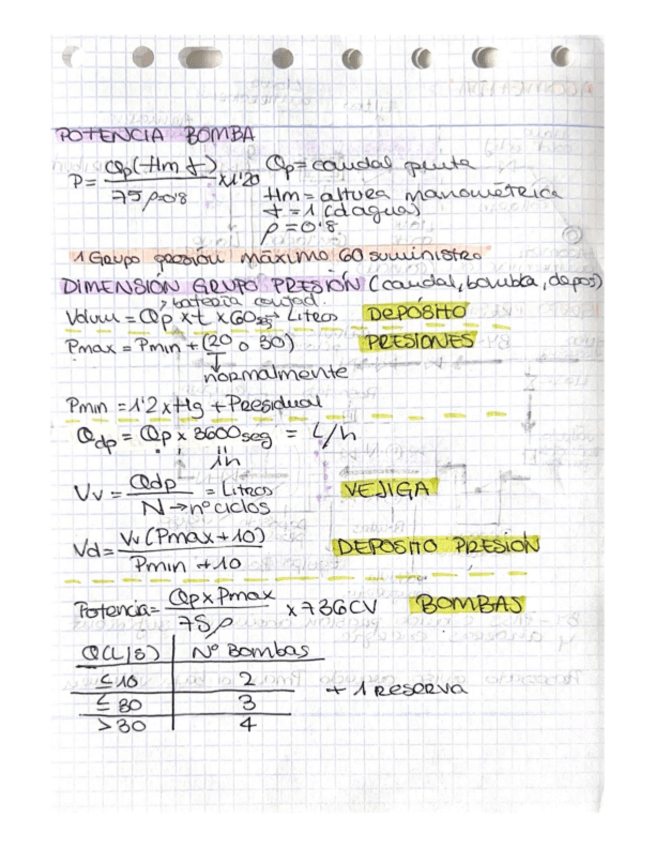 POTENCIA BOMBA
P = Qp(Hm f) / 75 ρ=0'8 x1'20
Qp = caudal punta
Hm = altura manométrica
f = 1 (d agua)
ρ = 0'8
1 Grupo presión máximo 60 suministro
DIMENSION GRUPO PRESIÓN (caudal, bomba, depos)
batería contad.
Vdum = Qp x t x 60sg → Litros DEPÓSITO
Pmax = Pmin + (20 o 30) PRESIONES
normalmente
Pmin = 1'2 x Hg + Presidual
Qdp = Qp x 3600seg = L/h
1h
Vv = Qdp / N → nº ciclos = Litros VEJIGA
Vd = Vv (Pmax + 10) / Pmin + 10 DEPOSITO PRESIÓN
Potencia = Qp x Pmax / 75 ρ x 736CV BOMBAS
Q(L/S) Nº Bombas
≤ 10 2
≤ 30 3
> 30 4
+ 1 RESERVA